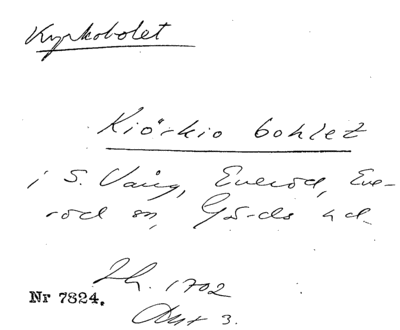 Kyrkobolet
Kiörkio bohlet
i S. Vång, Everöd, Eve-
röd sn, Gärds hd.
Lh. 1702
Nr 7824.
Akt 3.